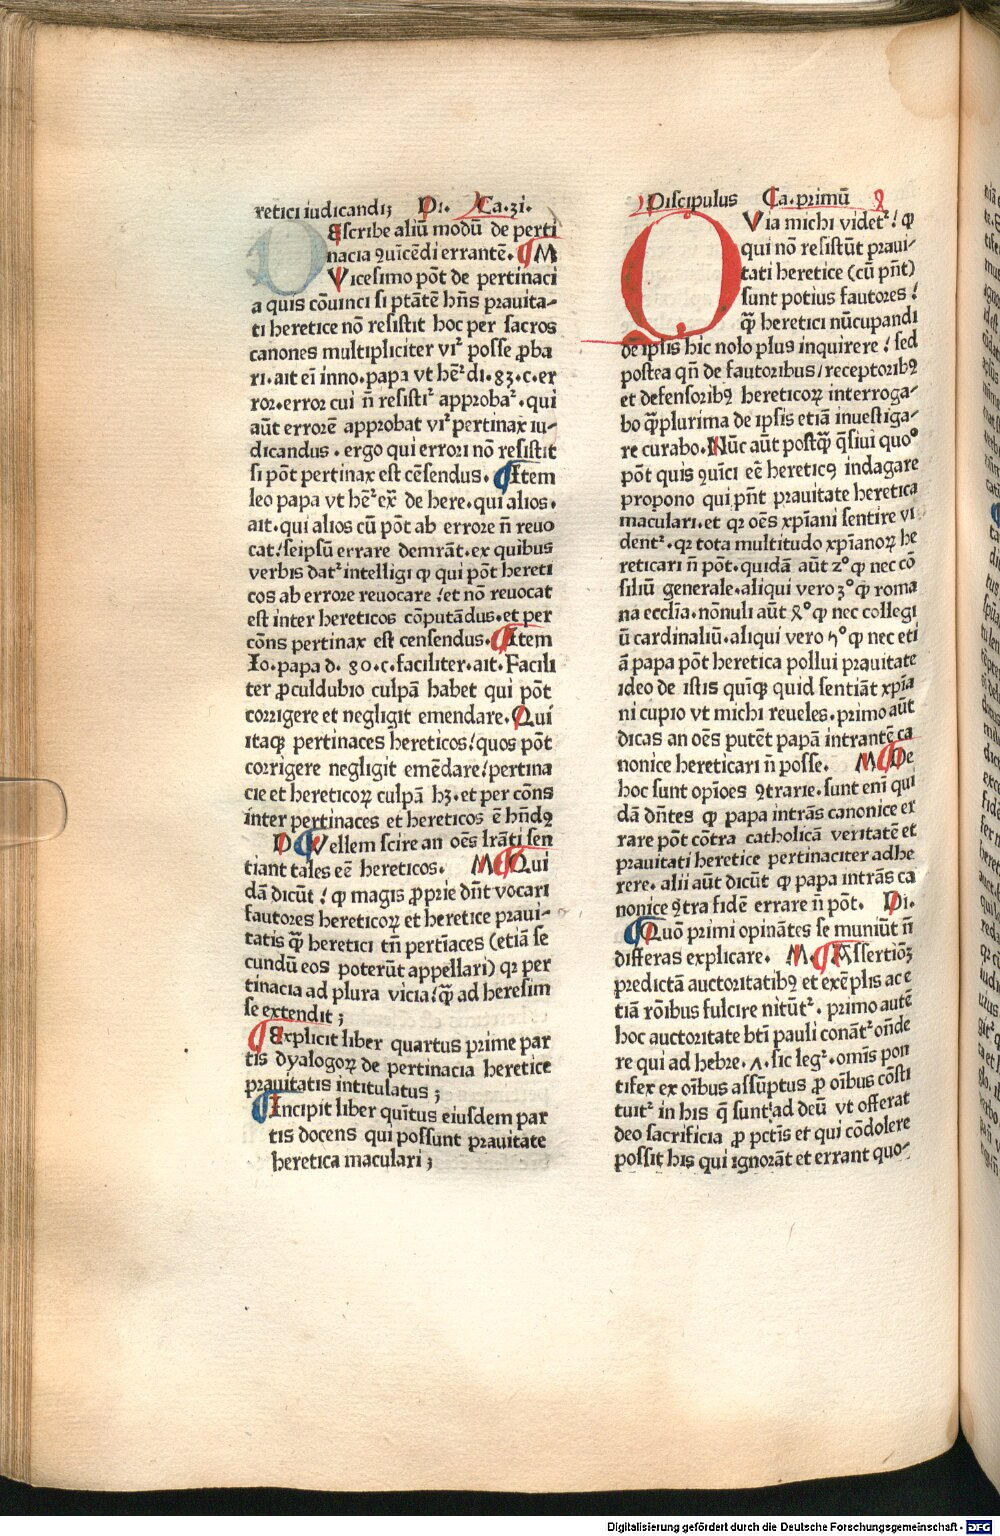 retici iudicandi; Di. Ca.xi.
DEscribe aliū modū de perti
nacia ↄuīcēdi errantē. M
Vicesimo pōt de pertinaci
a quis cōuinci si ptātē hn̄s prauita-
ti heretice nō resistit hoc per sacros
canones multipliciter vir᷑ posse ꝓba
ri. ait eī inno. papa vt he᷑ di. 83. c. er
ror. error cui n̄ resistit᷑ approbat᷑. qui
aūt errorē approbat vr᷑ pertinax iu-
dicandus. ergo qui errori nō resistit
si pōt pertinax est cēsendus. Item
leo papa vt he᷑ ex̄ de here. qui alios.
ait. qui alios cū pōt ab errore n̄ reuo
cat: seipsū errare demrāt. ex quibus
verbis dat᷑ intelligi ꝙ qui pōt hereti
cos ab errore reuocare: et nō reuocat
est inter hereticos cōputādus. et per
cōns pertinax est censendus. Item
Io. papa d. 80. c. faciliter. ait. Facili
ter ꝓculdubio culpā habet qui pōt
corrigere et negligit emendare. Qui
itaqꝫ pertinaces hereticos: quos pōt
corrigere negligit emēdare: pertina
cie et hereticoꝝ culpā hꝫ. et per cōns
inter pertinaces et hereticos ē hn̄dꝰ
D Vellem scire an oēs lrāti sen
tiant tales eē hereticos. M Qui
dā dicūt: ꝙ magis ꝓprie dn̄t vocari
fautores hereticoꝝ et heretice praui-
tatis ꝙ̄ heretici tn̄ pertīaces (etiā se
cundū eos poterūt appellari) qꝛ per
tinacia ad plura vicia: ꝙ̄ ad heresim
se extendit;
Explicit liber quartus prime par
tis dyalogoꝝ de pertinacia heretice
prauitatis intitulatus;
Incipit liber quītus eiusdem par
tis docens qui possunt prauitate
heretica maculari;
Discipulus Ca. primū
QVia michi videt᷑: ꝙ
qui nō resistūt praui-
tati heretice (cū pn̄t)
sunt potius fautores:
ꝙ̄ heretici nūcupandi
de ipsis hic nolo plus inquirere: sed
postea qn̄ de fautoribus/receptoribꝰ
et defensoribꝰ hereticoꝝ interroga-
bo ꝙ̄plurima de ipsis etiā inuestiga-
re curabo. Nūc aūt postꝙ̄ q̄siui quo°
pōt quis ↄuīci eē hereticꝰ indagare
propono qui pn̄t prauitate heretica
maculari. et qꝛ oēs xp̄iani sentire vi
dent᷑. qꝛ tota multitudo xp̄ianoꝝ he
reticari n̄ pōt. quidā aūt 2° ꝙ nec cō
siliū generale. aliqui vero 3° ꝙ roma
na eccl̄ia. nōnuli aūt 4° ꝙ nec collegi
ū cardinaliū. aliqui vero 5° ꝙ nec eti
ā papa pōt heretica pollui prauitate
ideo de istis quīqꝫ quid sentiāt xp̄ia
ni cupio vt michi reueles. primo aūt
dicas an oēs putēt papā intrantē ca
nonice hereticari n̄ posse. M De
hoc sunt opīoes ↄtrarie. sunt enī qui
dā dn̄tes ꝙ papa intrās canonice er
rare pōt cōtra catholicā veritatē et
prauitati heretice pertinaciter adhe
rere. alii aūt dicūt ꝙ papa intrās ca
nonice ↄtra fidē errare n̄ pōt. Di.
Quō primi opināntes se muniūt n̄
differas explicare. M. Assertiōꝫ
predictā auctoritatibꝰ et exēplis ac e
tiā rōibus fulcire nitūt᷑. primo autē
hoc auctoritate bt̄i pauli conāt᷑ on̄de
re qui ad hebre. 5. sic leg᷑. omīs pon
tifex ex oībus assūptus ꝓ oībus cōsti
tuit᷑ in his q̄ sunt ad deū vt offerat
deo sacrificia ꝓ pctīs et qui cōdolere
possit his qui ignorāt et errant quo-
Digitalisierung gefördert durch die Deutsche Forschungsgemeinschaft - DFG